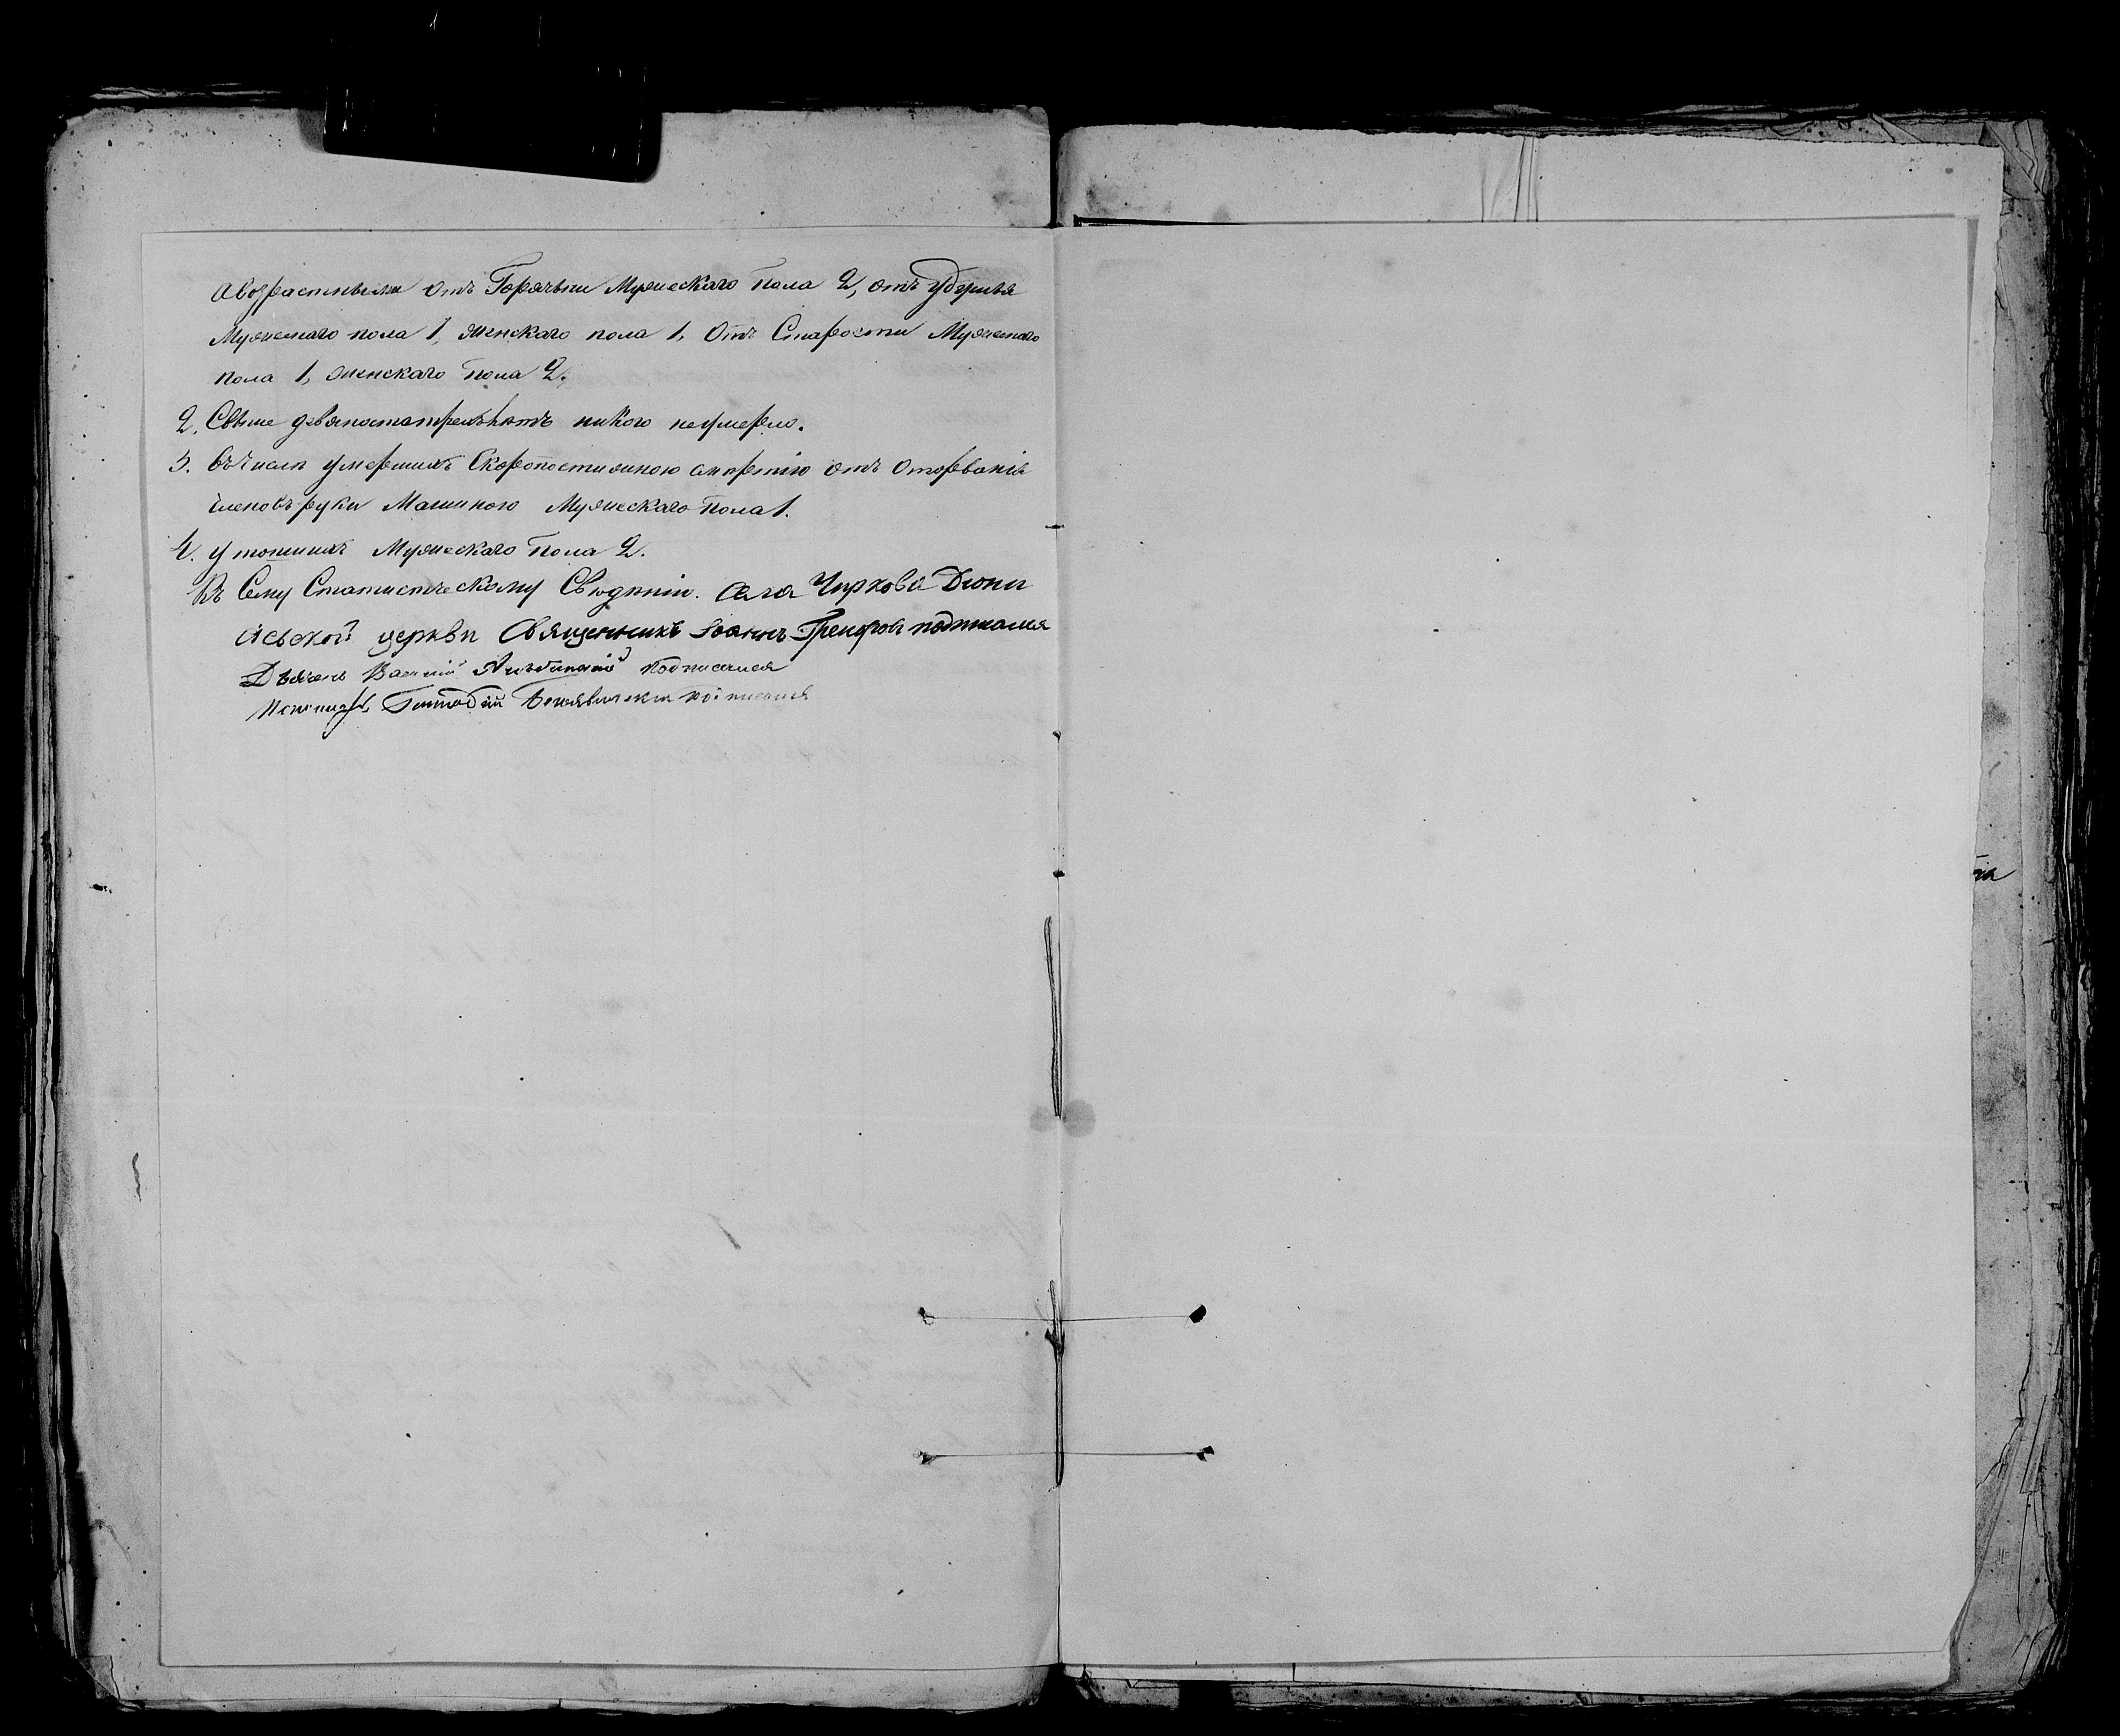 Авозрастными отъ Горячьки Мужескаго пола 2, отъ удушья
Мужескаго пола 1, женскаго пола 1, Отъ Старости Мужескаго
пола 1, женскаго пола 2.
2. Свыше девяностатрехълѣтъ никого неумерло.
3. Въчислѣ умершихъ Скоропостижною смертію отъ Оторванія
Членовъ руки Машиною Мужескаго пола 1.
4. утопшихъ Мужескаго пола 2.
Къ Сему Статистическому Свѣдѣнію. Села Чиркова Діони
сьеской церкви Священникъ Іоаннъ подписался
Дьяконъ подписался
подписался